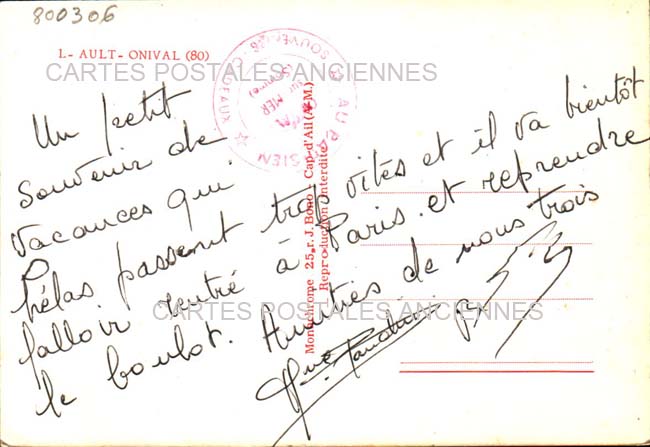 800306
I.- AULT - ONIVAL (80)
CARTES POSTALES ANCIENNES
Un petit
souvenir de
vacances qui
hélas passent trop vites et il va bientôt
falloir rentré à Paris et reprendre
le boulot. Amitiés de nous trois
SOUVENIRS - CADEAUX
MER
(Somme)
Monochrome 25, r. J. Bono Cap-d'Ail (A.M.)
Reproduction interdite
CARTES POSTALES ANCIENNES